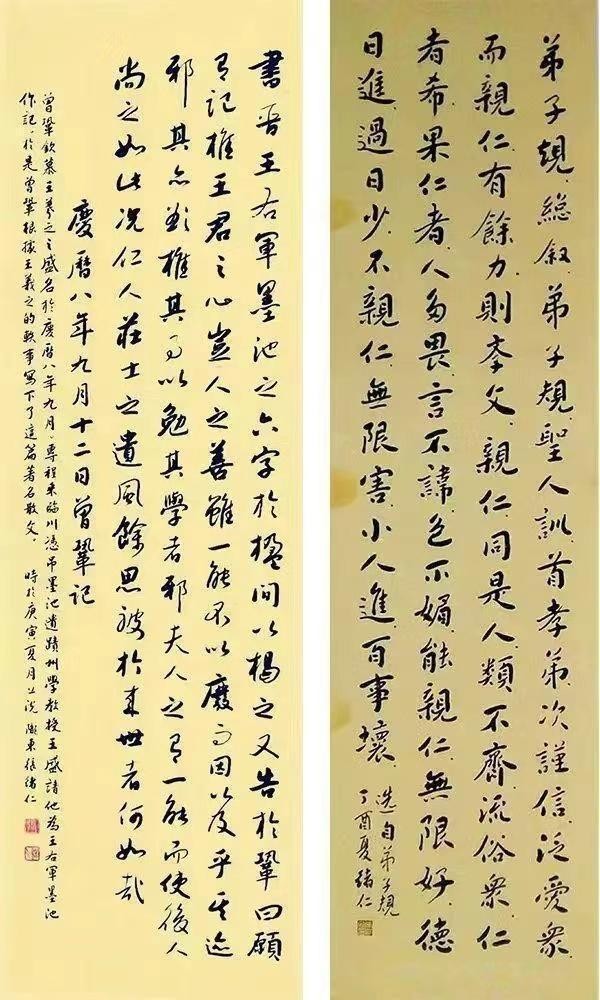 書晉王右軍墨池之六字於楹間以揭之又告於鞏曰願
有記推王君之心豈人之善雖一能不以廢而因以及乎其迹
邪其亦欲推其事以勉其學者邪夫人之有一能而使後人
尚之如此況仁人莊士之遺風餘思被於来世者何如哉
慶曆八年九月十二日曾鞏記
曾鞏欽慕王羲之之盛名於慶曆八年九月，專程来臨川憑吊墨池遺蹟州學教授王盛請他為王右軍墨池
作記，於是曾鞏根據王羲之的軼事寫下了這篇著名散文。 時於庚寅夏月上浣 東張緒仁
弟子規總叙弟子規聖人訓首孝弟次謹信泛愛衆
而親仁有餘力則孝父親仁同是人類不齊流俗衆仁
者希果仁者人多畏言不諱色不媚能親仁無限好德
日進過日少不親仁無限害小人進百事壞
選自弟子規
丁酉夏緒仁